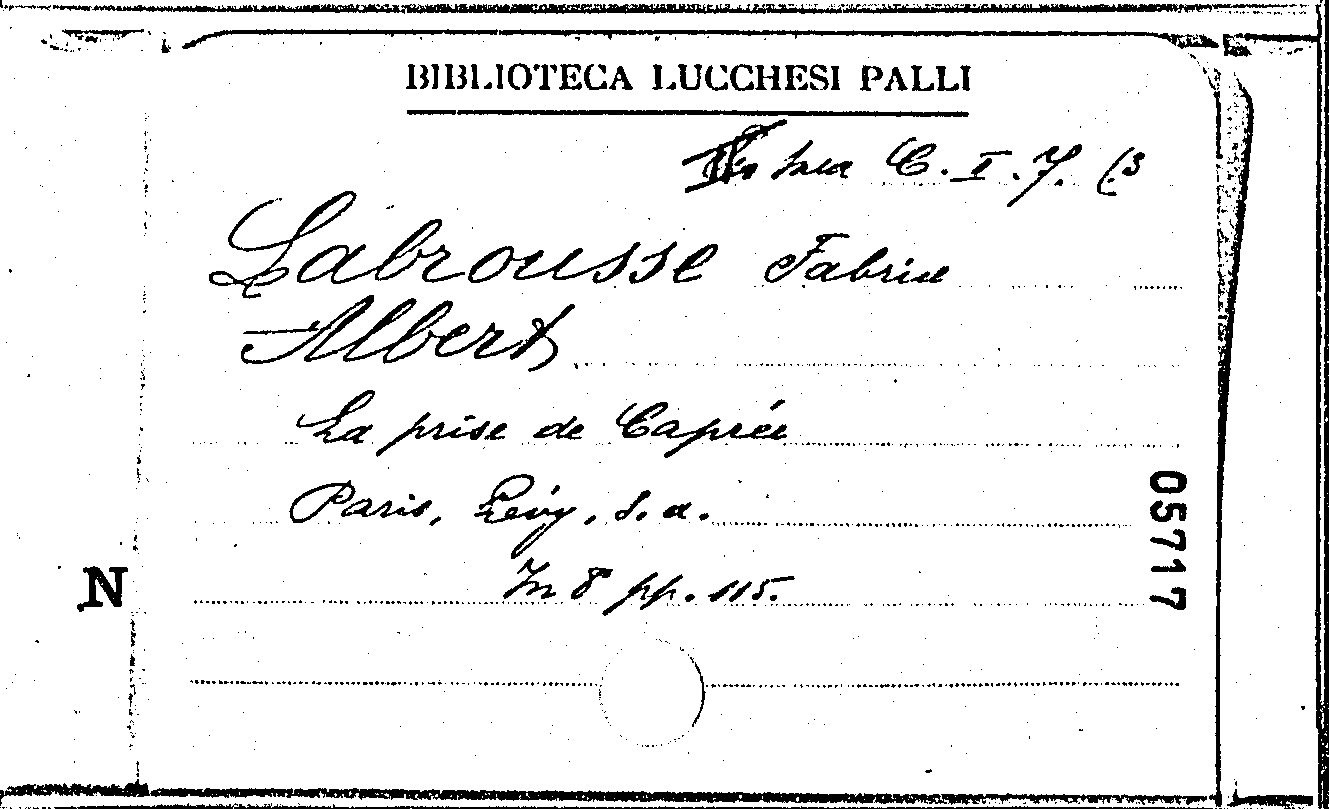 BIBLIOTECA LUCCHESI PALLI
C. I. 7. (3
Labrousse Fabrice
Albert
La prise de Caprée
Paris, Lévy, s. a.
In 8° pp. 115.
05717
N